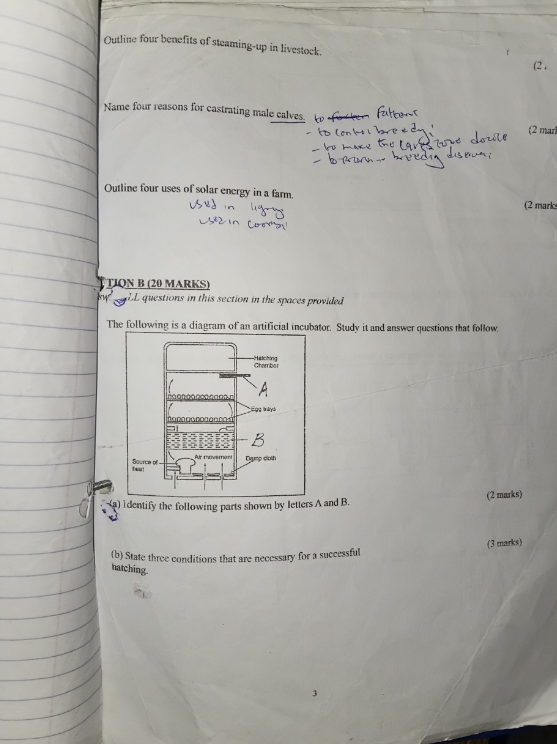 Outline four benefits of steaming-up in livestock.
(2
Name four reasons for castrating male calves. to fatten
- to control breedy
(2 mar
- to make the docile
- breedig diseases
Outline four uses of solar energy in a farm.
(2 marks
used in
use in
TION B (20 MARKS)
LL questions in this section in the spaces provided
The following is a diagram of an artificial incubator. Study it and answer questions that follow.
Hatching
Chamber
A
Egg trays
B
Air movement
Damp cloth
Source of
heat
(2 marks)
(a) Identify the following parts shown by letters A and B.
(3 marks)
(b) State three conditions that are necessary for a successful
hatching.
3